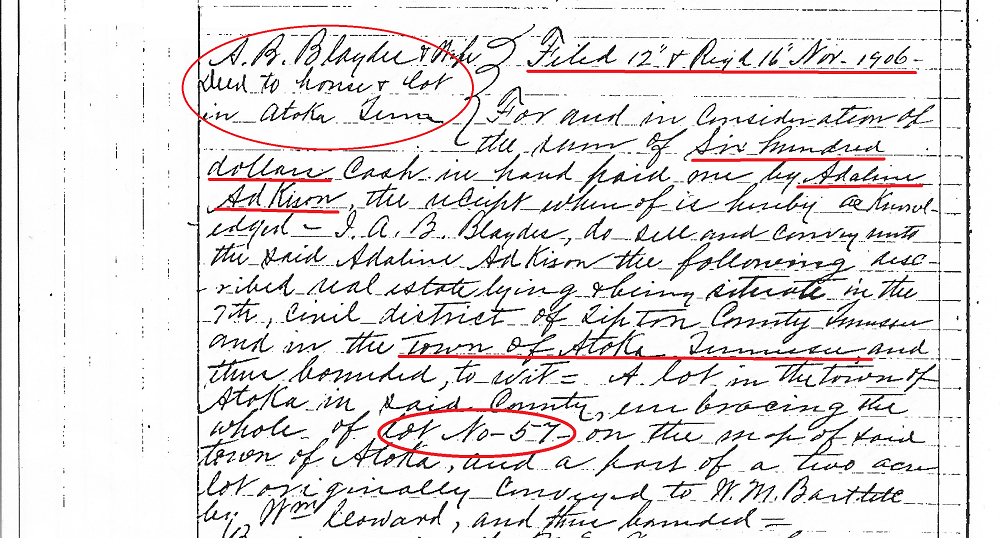 A. B. Blaydes & Wife
Deed to house & lot
in Atoka Tenn
Filed 12" & Regd 16" Nov. 1906
For and in Consideration of
the sum of Six hundred
dollars Cash in hand paid me by Adaline
AdKison, the receipt where of is hereby acKnowl-
edged - I. A. B. Blaydes, do sell and convey unto
the said Adaline AdKison the following desc-
ribed real estate lying & being situate in the
7th, Civil district of Tipton County Tennessee
and in the town of Atoka Tennessee, and
thus bounded, to wit = A lot in the town of
Atoka in said County, embracing the
whole of lot No - 57 - on the map of said
town of Atoka, and a part of a two acre
lot originally conveyed to W. M. Bartlett
by Wm Coward, and thus bounded =